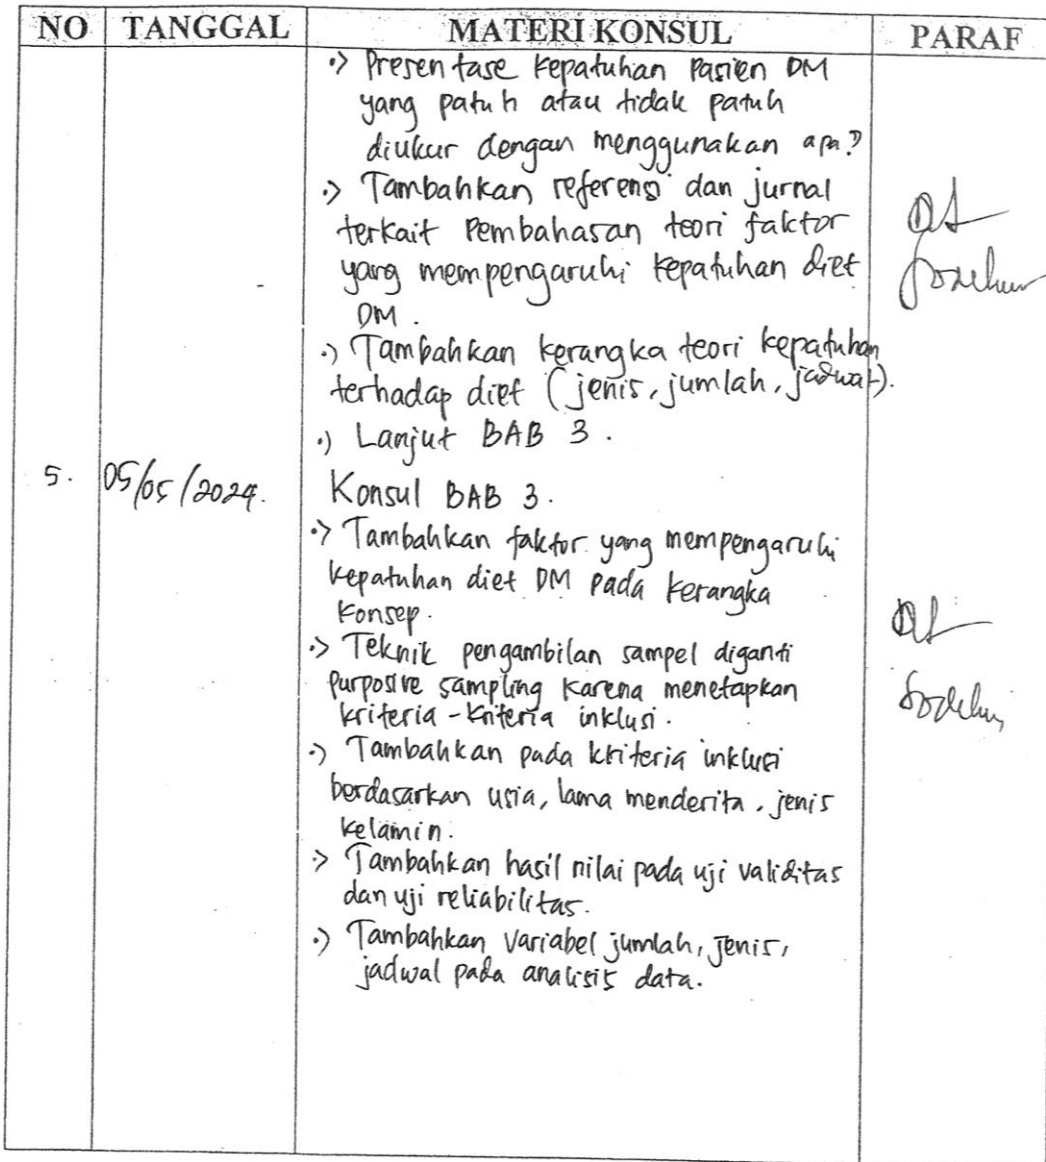 NO TANGGAL MATERI KONSUL PARAF
•> Presentase kepatuhan Pasien DM
yang patuh atau tidak patuh
diukur dengan menggunakan apa?
•> Tambahkan referensi dan jurnal
terkait Pembahasan teori faktor
yang mempengaruhi kepatuhan diet
DM.
•) Tambahkan kerangka teori kepatuhan
terhadap diet (jenis, jumlah, jadwal).
•) Lanjut BAB 3.
5. 05/05/2024. Konsul BAB 3.
•> Tambahkan faktor yang mempengaruhi
kepatuhan diet DM pada kerangka
Konsep.
•> Teknik pengambilan sampel diganti
Purposive sampling karena menetapkan
kriteria-kriteria inklusi.
•) Tambahkan pada kriteria inklusi
berdasarkan usia, lama menderita, jenis
kelamin.
•> Tambahkan hasil nilai pada uji validitas
dan uji reliabilitas.
•) Tambahkan Variabel jumlah, Jenis,
jadwal pada analisis data.